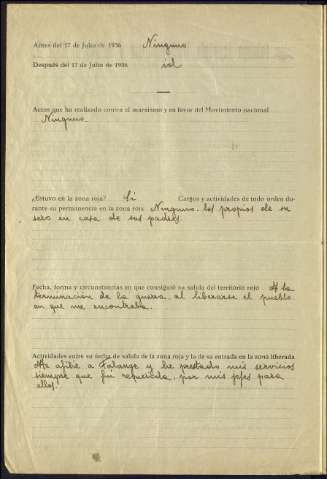 Antes del 17 de Julio de 1936 Ninguno
Después del 17 de Julio de 1936 id
Actos que ha realizado contra el marxismo y en favor del Movimiento nacional
Ninguno
¿Estuvo en la zona roja? Sí Cargos y actividades de todo orden du-
rante su permanencia en la zona roja Ninguno. los propios de su
sexo en casa de sus padres.
Fecha, forma y circunstancias en que consiguió su salida del territorio rojo A la
terminacion de la guerra, al liberarse el pueblo
en que me encontraba.
Actividades entre su fecha de salida de la zona roja y la de su entrada en la zona liberada
Me afilié a Falange y he prestado mis servicios
siempre que fui requerida, por mis jefes para
ellos.